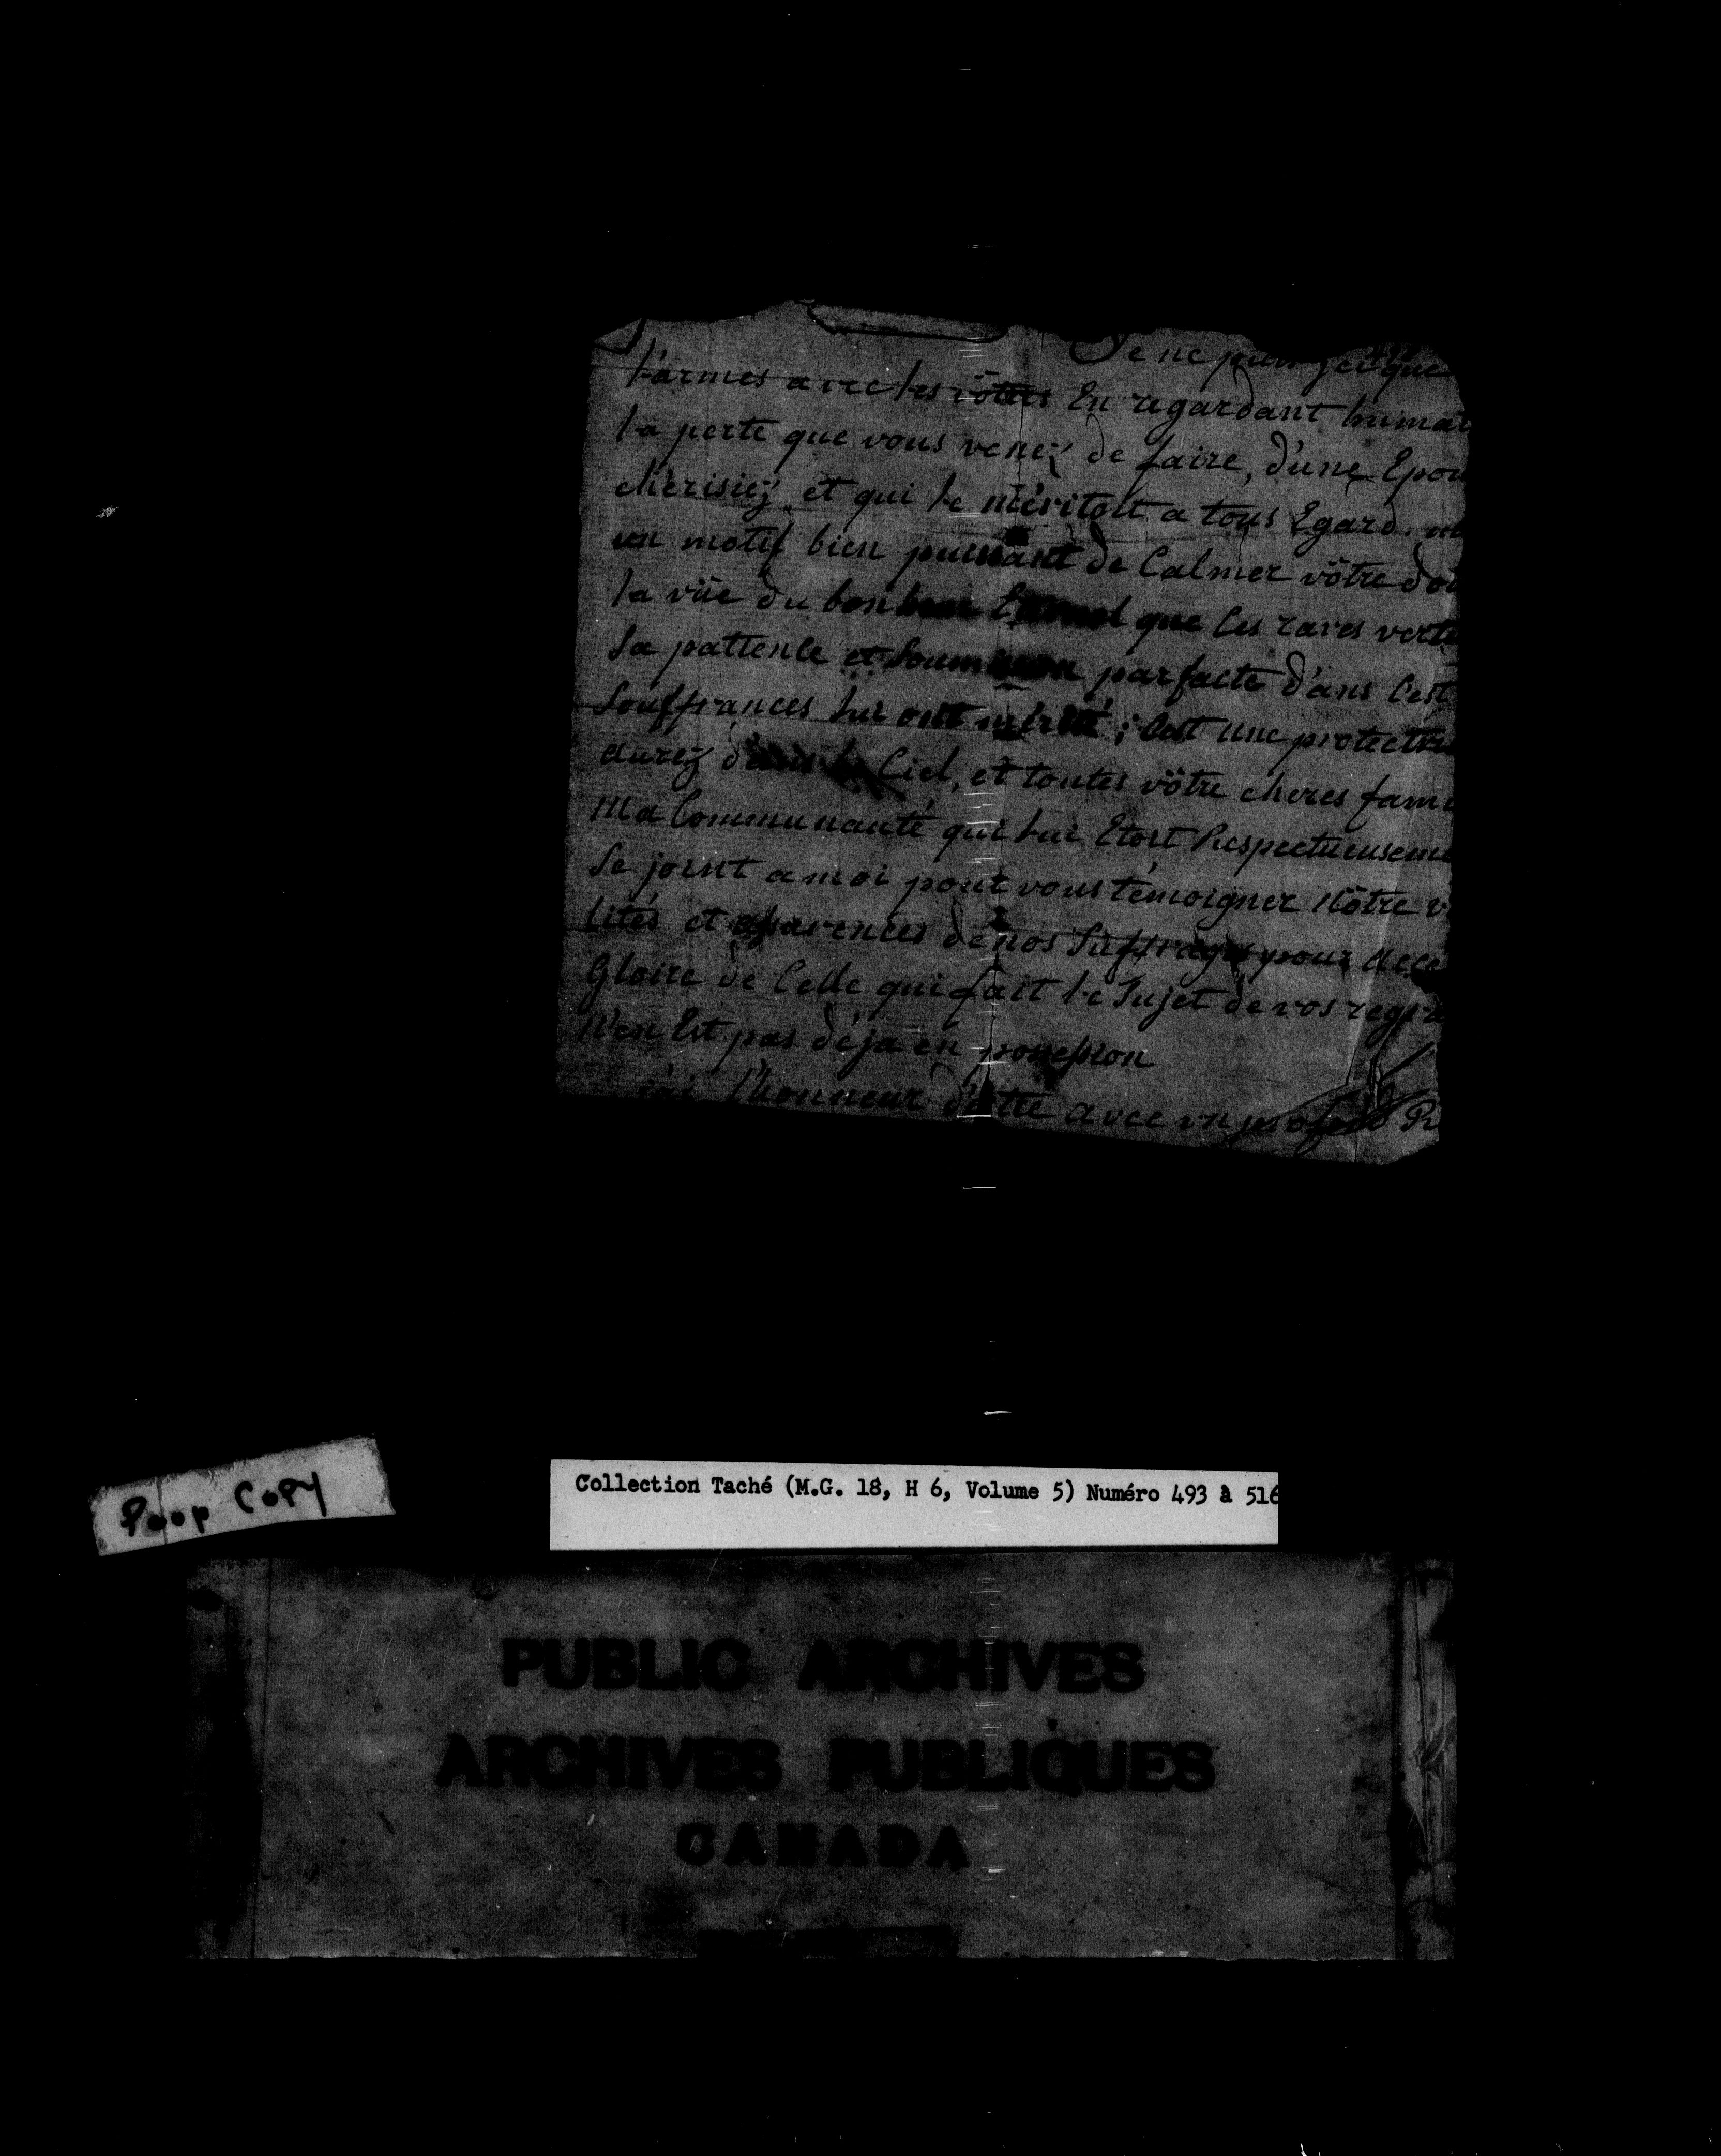 Je ne puis
larmes avec les vôtres En regardant humai
la perte que vous venez de faire, d'une Epou
chèrisiez et qui le méritoit a tous Egard. m
un motif bien puissant de Calmer vôtre dou
la vüe du bonheur Eternel que les rares vertu
Sa patience et Soumission parfaite d'ans Cest
Souffrances lui ont mérité; Cest une protectr
aurez dans le Ciel, et toutes vôtre cheres fami
Ma Communauté qui lui Etoit Respectueuseme
Se joint a moi pour vous témoigner Nôtre
et de nos Suffrages pour
Gloire de Celle qui fait le Sujet de vos regre
n'en Est pas déja en possession
l'honneur d'être avec un profond
POOR COPY
Collection Taché (M.G. 18, H 6, Volume 5) Numéro 493 à 516
PUBLIC ARCHIVES
ARCHIVES PUBLIQUES
CANADA